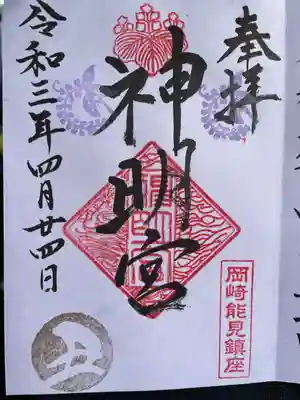 奉拝
神明宮
岡崎能見鎮座
令和三年四月廿四日